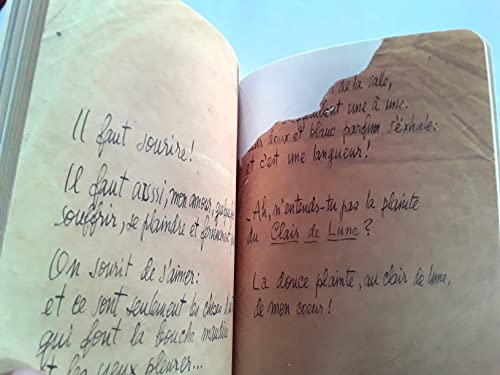 Il faut sourire!
Il faut aussi, mon amour,
souffrir, se plaindre et
On sourit de s'aimer:
et ce sont seulement les choses
qui font la bouche
et les yeux pleurer...
de la salle,
une à une.
doux et blanc parfum s'éxhale:
et c'est une langueur!
_Ah, n'entends-tu pas la plainte
du Clair de Lune?
La douce plainte, au clair de lune,
de mon coeur!